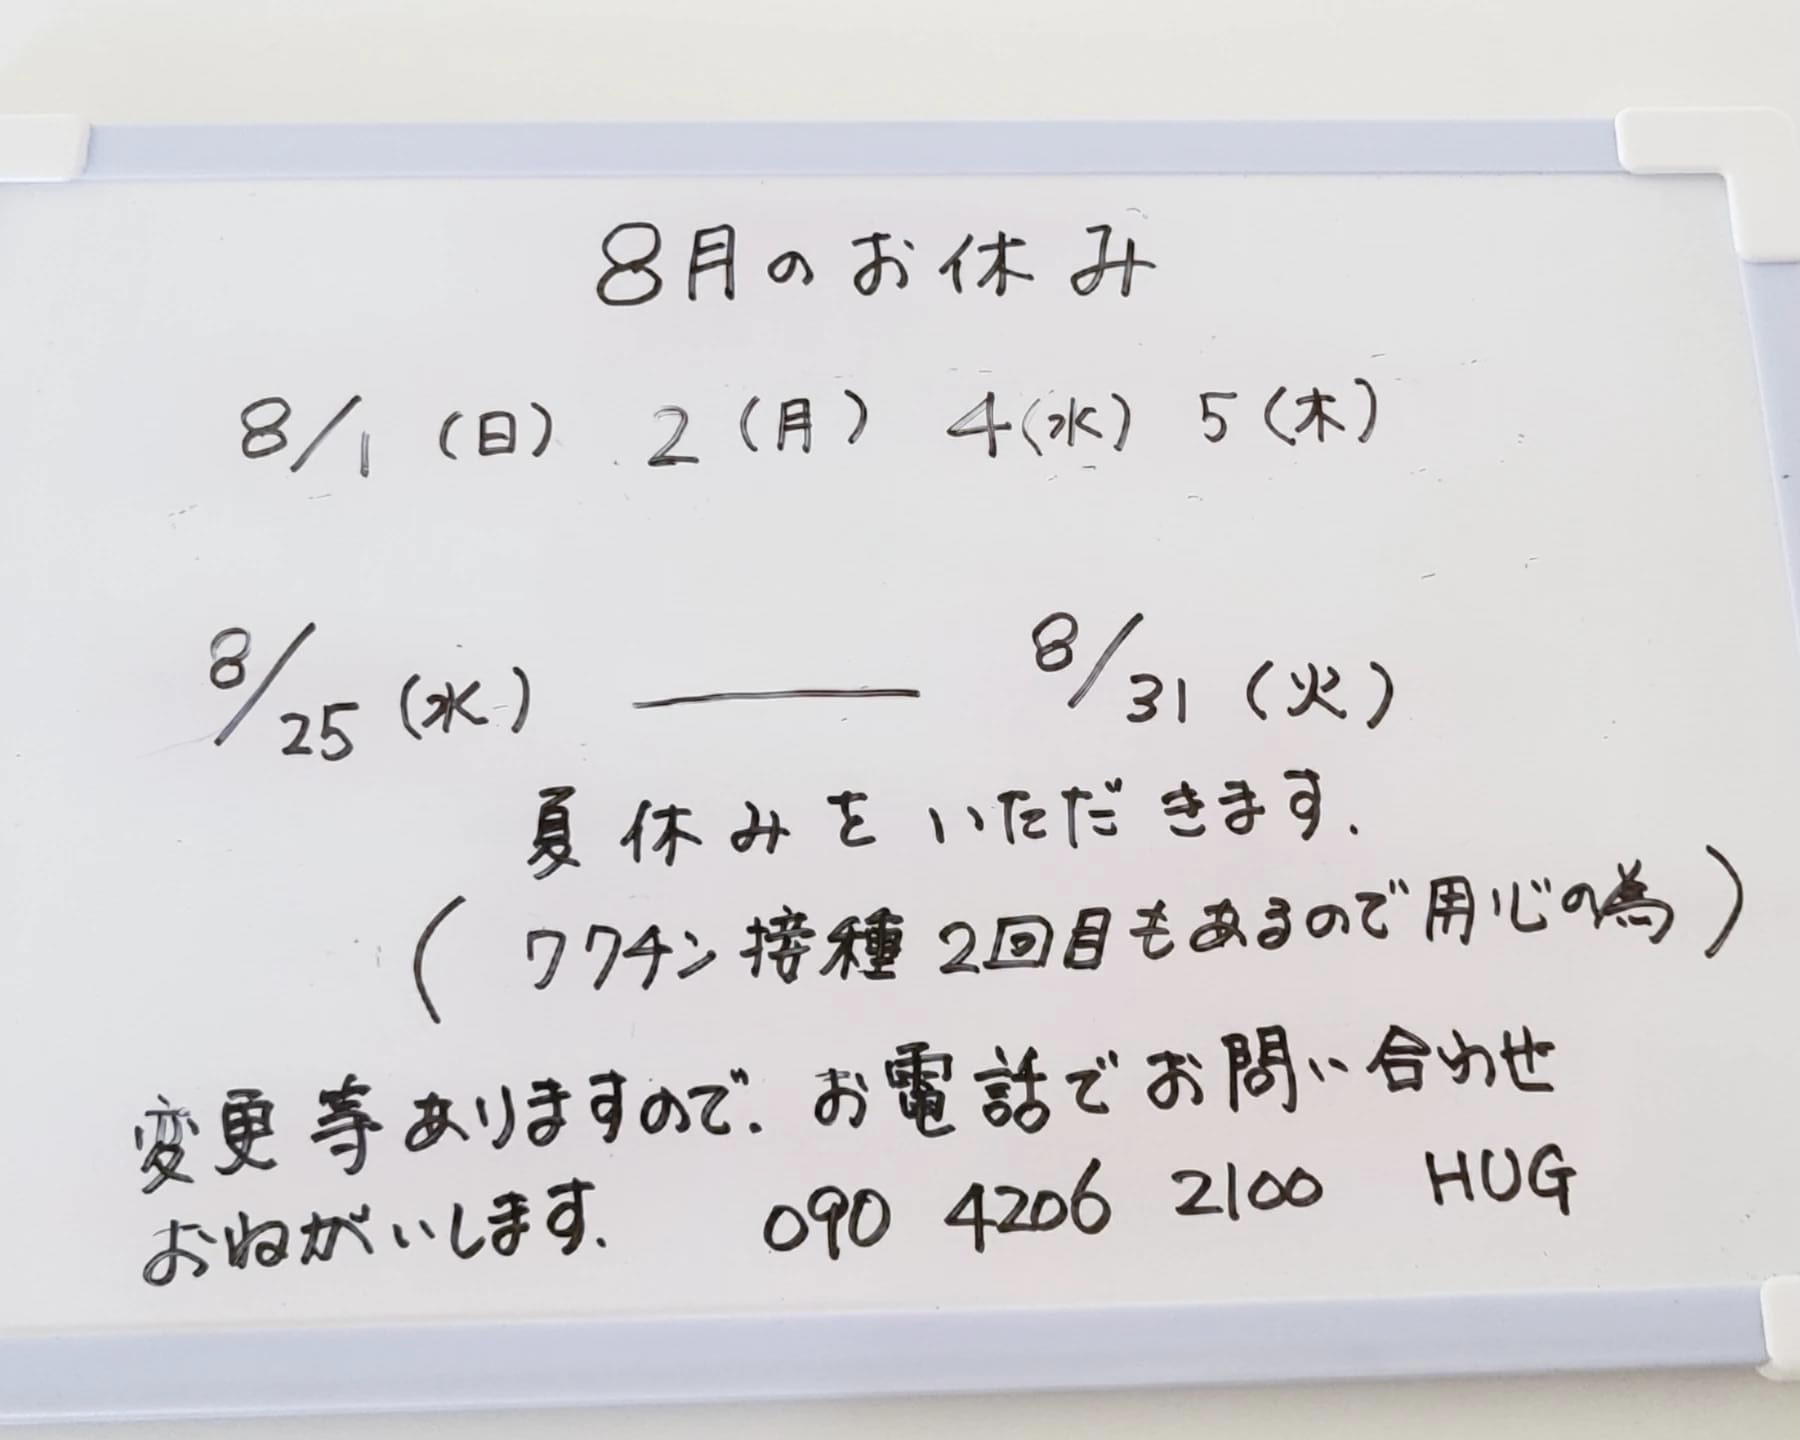 8月のお休み
8/1（日） 2（月） 4（水） 5（木）
8/25（水） ── 8/31（火）
夏休みをいただきます.
（ワクチン接種2回目もあるので用心の為）
変更等ありますので. お電話でお問い合わせ
おねがいします. 090 4206 2100 HUG